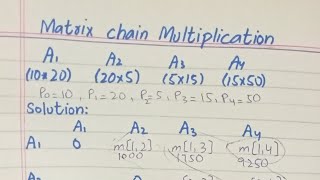 Matrix chain Multiplication
A1 A2 A3 A4
(10×20) (20×5) (5×15) (15×50)
P0=10, P1=20, P2=5, P3=15, P4=50
Solution:
A1 A2 A3 A4
A1 0 m[1,2] m[1,3] m[1,4]
1000 1750 9250